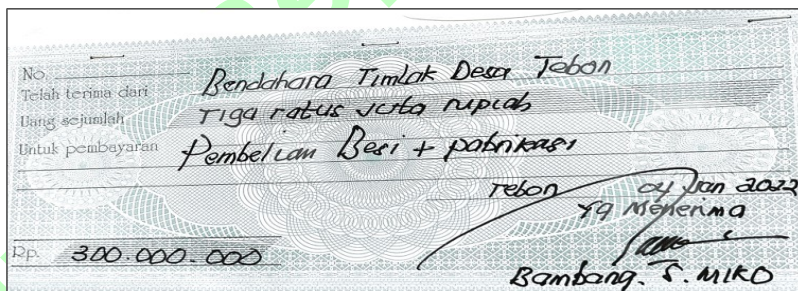 No.
Telah terima dari Bendahara Timlak Desa Tebon
Uang sejumlah Tiga ratus juta rupiah
Untuk pembayaran Pembelian Besi + pabrikasi
Tebon 04 Jan 2022
Yg Menerima
Rp. 300.000.000
Bambang. S. MIKO